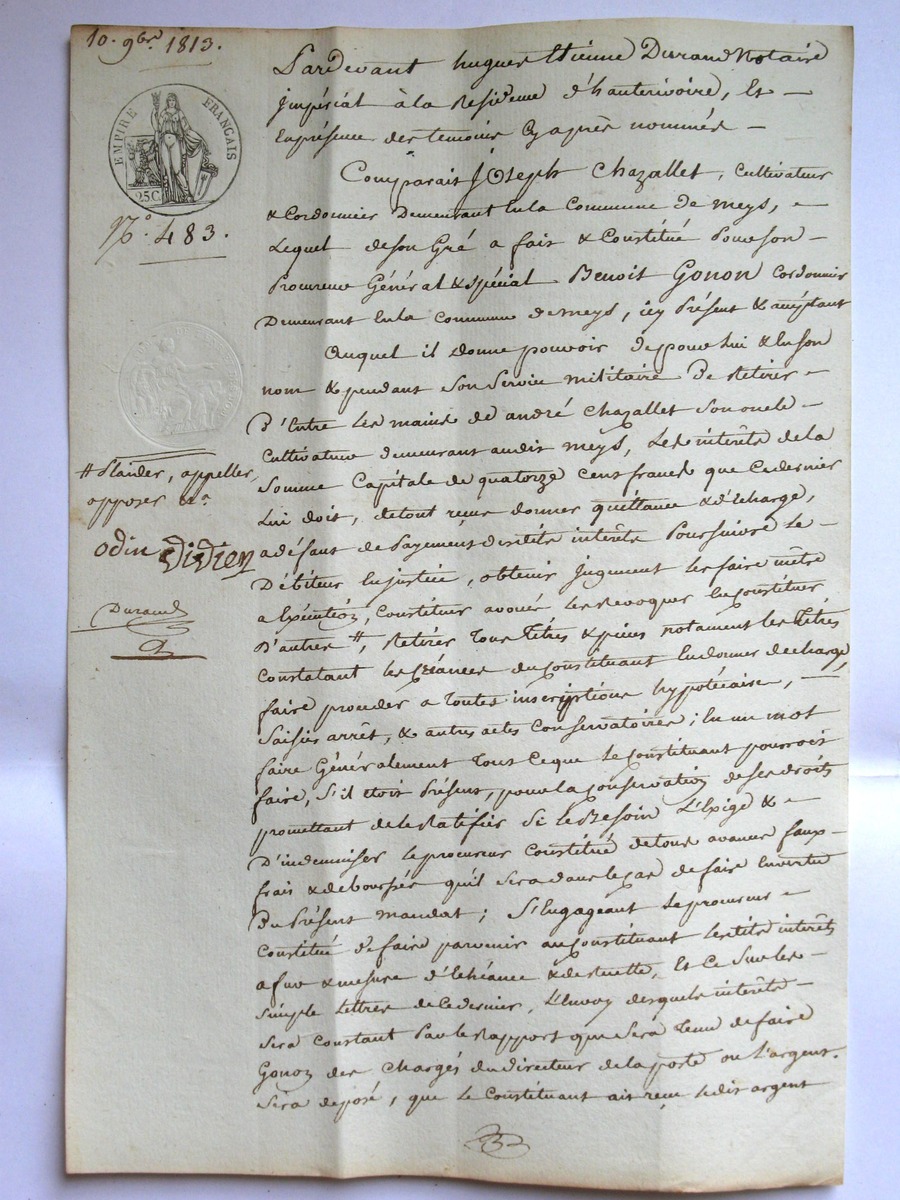 10. 9bre. 1813.
EMPIRE FRANÇAIS
25C
N°. 483.
Pardevant hugues Etienne Durand Notaire
jmpérial à la Residence d'hauterivoire, Et
Enprésence des temoins Cyaprès nommés
Comparait Joseph Chazallet, Cultivateur
& Cordonnier Demeurant Enla Commune de meys,
Lequel deson Gré a fait & Constitué Pour son
Procureur Général & spécial Benoit Gonon Cordonnier
Demeurant Enla Commune de meys, icy Présent & acceptant
Auquel il donne pouvoir de pour Lui & En son
nom & pendant son Service militaire De Retirer
D'Entre Les mains de andré Chazallet son oncle
Cultivateur demeurant audit meys, Les intérêts de la
Somme Capitale de quatorze Cent francs que Cedernier
Lui doit, detout reçu donner quittance & décharge,
adéfaut de Payement desdits intérêts Poursuivre Le
Débiteur Enjustice, obtenir jugement Les faire métre
a Exécution, Constituer avoués Les Revoquer En Constituer
D'autres #, Retirer Tous Titres & pièces notament Les Titres
Constatant Les Créances du Constituant En donner decharge,
faire proceder a Toutes inscriptions hypotécaire,
Saisies arrêt, & autres actes Conservatoires; En un mot
faire Généralement Tout Ceque Le Constituant pourroit
faire, S'il étoit Présent, pour la Conservation de ses droits
promettant de le Ratifier Si le Besoin L'Exige &
D'indemniser Le procureur Constitué de tous avances faux
frais & deboursés qu'il Sera dans le Cas de faire Envertu
Du Présent mandat; S'Engageant Le procureur
Constitué de faire parvenir au Constituant Lesdits intérêts
a fur & mesure d'Echéance & de Recette, Et Ce Sur Les
simple Lettres de Cedernier, L'Envoy desquels intérêts
Sera Constant Par Le Rapport que Sera Tenu de faire
Gonon des Chargés du directeur de la poste ou L'argent
Sera deposé, que Le Constituant ait reçu Ledit argent
# Plaider, appeller,
opposer &a
odin Didier
Durand